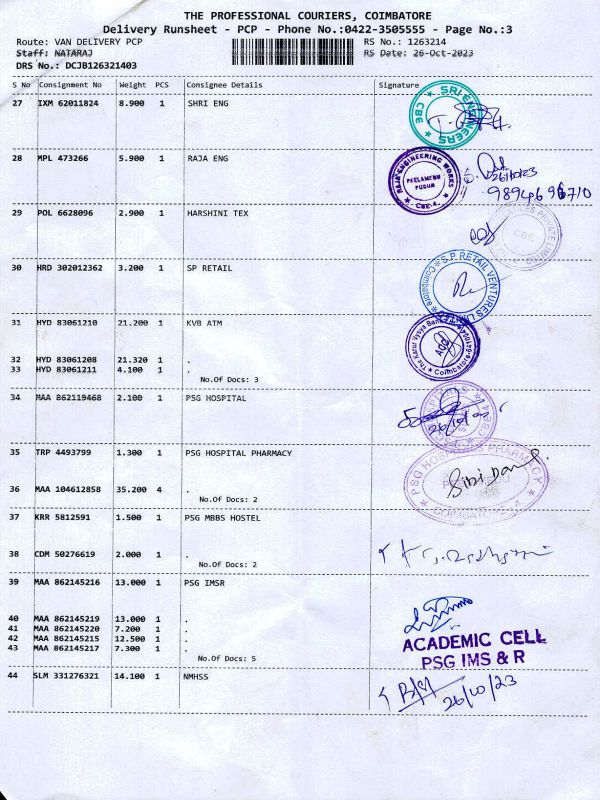 THE PROFESSIONAL COURIERS, COIMBATORE
Delivery Runsheet - PCP - Phone No.:0422-3505555 - Page No.:3
Route: VAN DELIVERY PCP RS No.: 1263214
Staff: NATARAJ RS Date: 26-Oct-2023
DRS No.: DCJB126321403
S No Consignment No Weight PCS Consignee Details Signature
27 IXM 62011824 8.900 1 SHRI ENG
SRI ENGINEERS CBE
28 MPL 473266 5.900 1 RAJA ENG
RAJA ENGINEERING WORKS PEELAMEDU PUDUR CBE-4
26/10/23
9894696710
29 POL 6628096 2.900 1 HARSHINI TEX
PRIVATE LIMITED CBE
30 HRD 302012362 3.200 1 SP RETAIL
S.P. RETAIL VENTURES Coimbatore
31 HYD 83061210 21.200 1 KVB ATM
The Karur Vysya Bank Coimbatore
32 HYD 83061208 21.320 1 .
33 HYD 83061211 4.100 1 .
No.Of Docs: 3
34 MAA 862119468 2.100 1 PSG HOSPITAL
26/10/
35 TRP 4493799 1.300 1 PSG HOSPITAL PHARMACY
PSG HOSPITALS PHARMACY COIMBATORE-4
36 MAA 104612858 35.200 4 .
No.Of Docs: 2
37 KRR 5812591 1.500 1 PSG MBBS HOSTEL
38 CDM 50276619 2.000 1 .
No.Of Docs: 2
39 MAA 862145216 13.000 1 PSG IMSR
40 MAA 862145219 13.000 1 .
41 MAA 862145220 7.200 1 .
42 MAA 862145215 12.500 1 .
43 MAA 862145217 7.300 1 .
ACADEMIC CELL
PSG IMS & R
No.Of Docs: 5
44 SLM 331276321 14.100 1 NMHSS
26/10/23